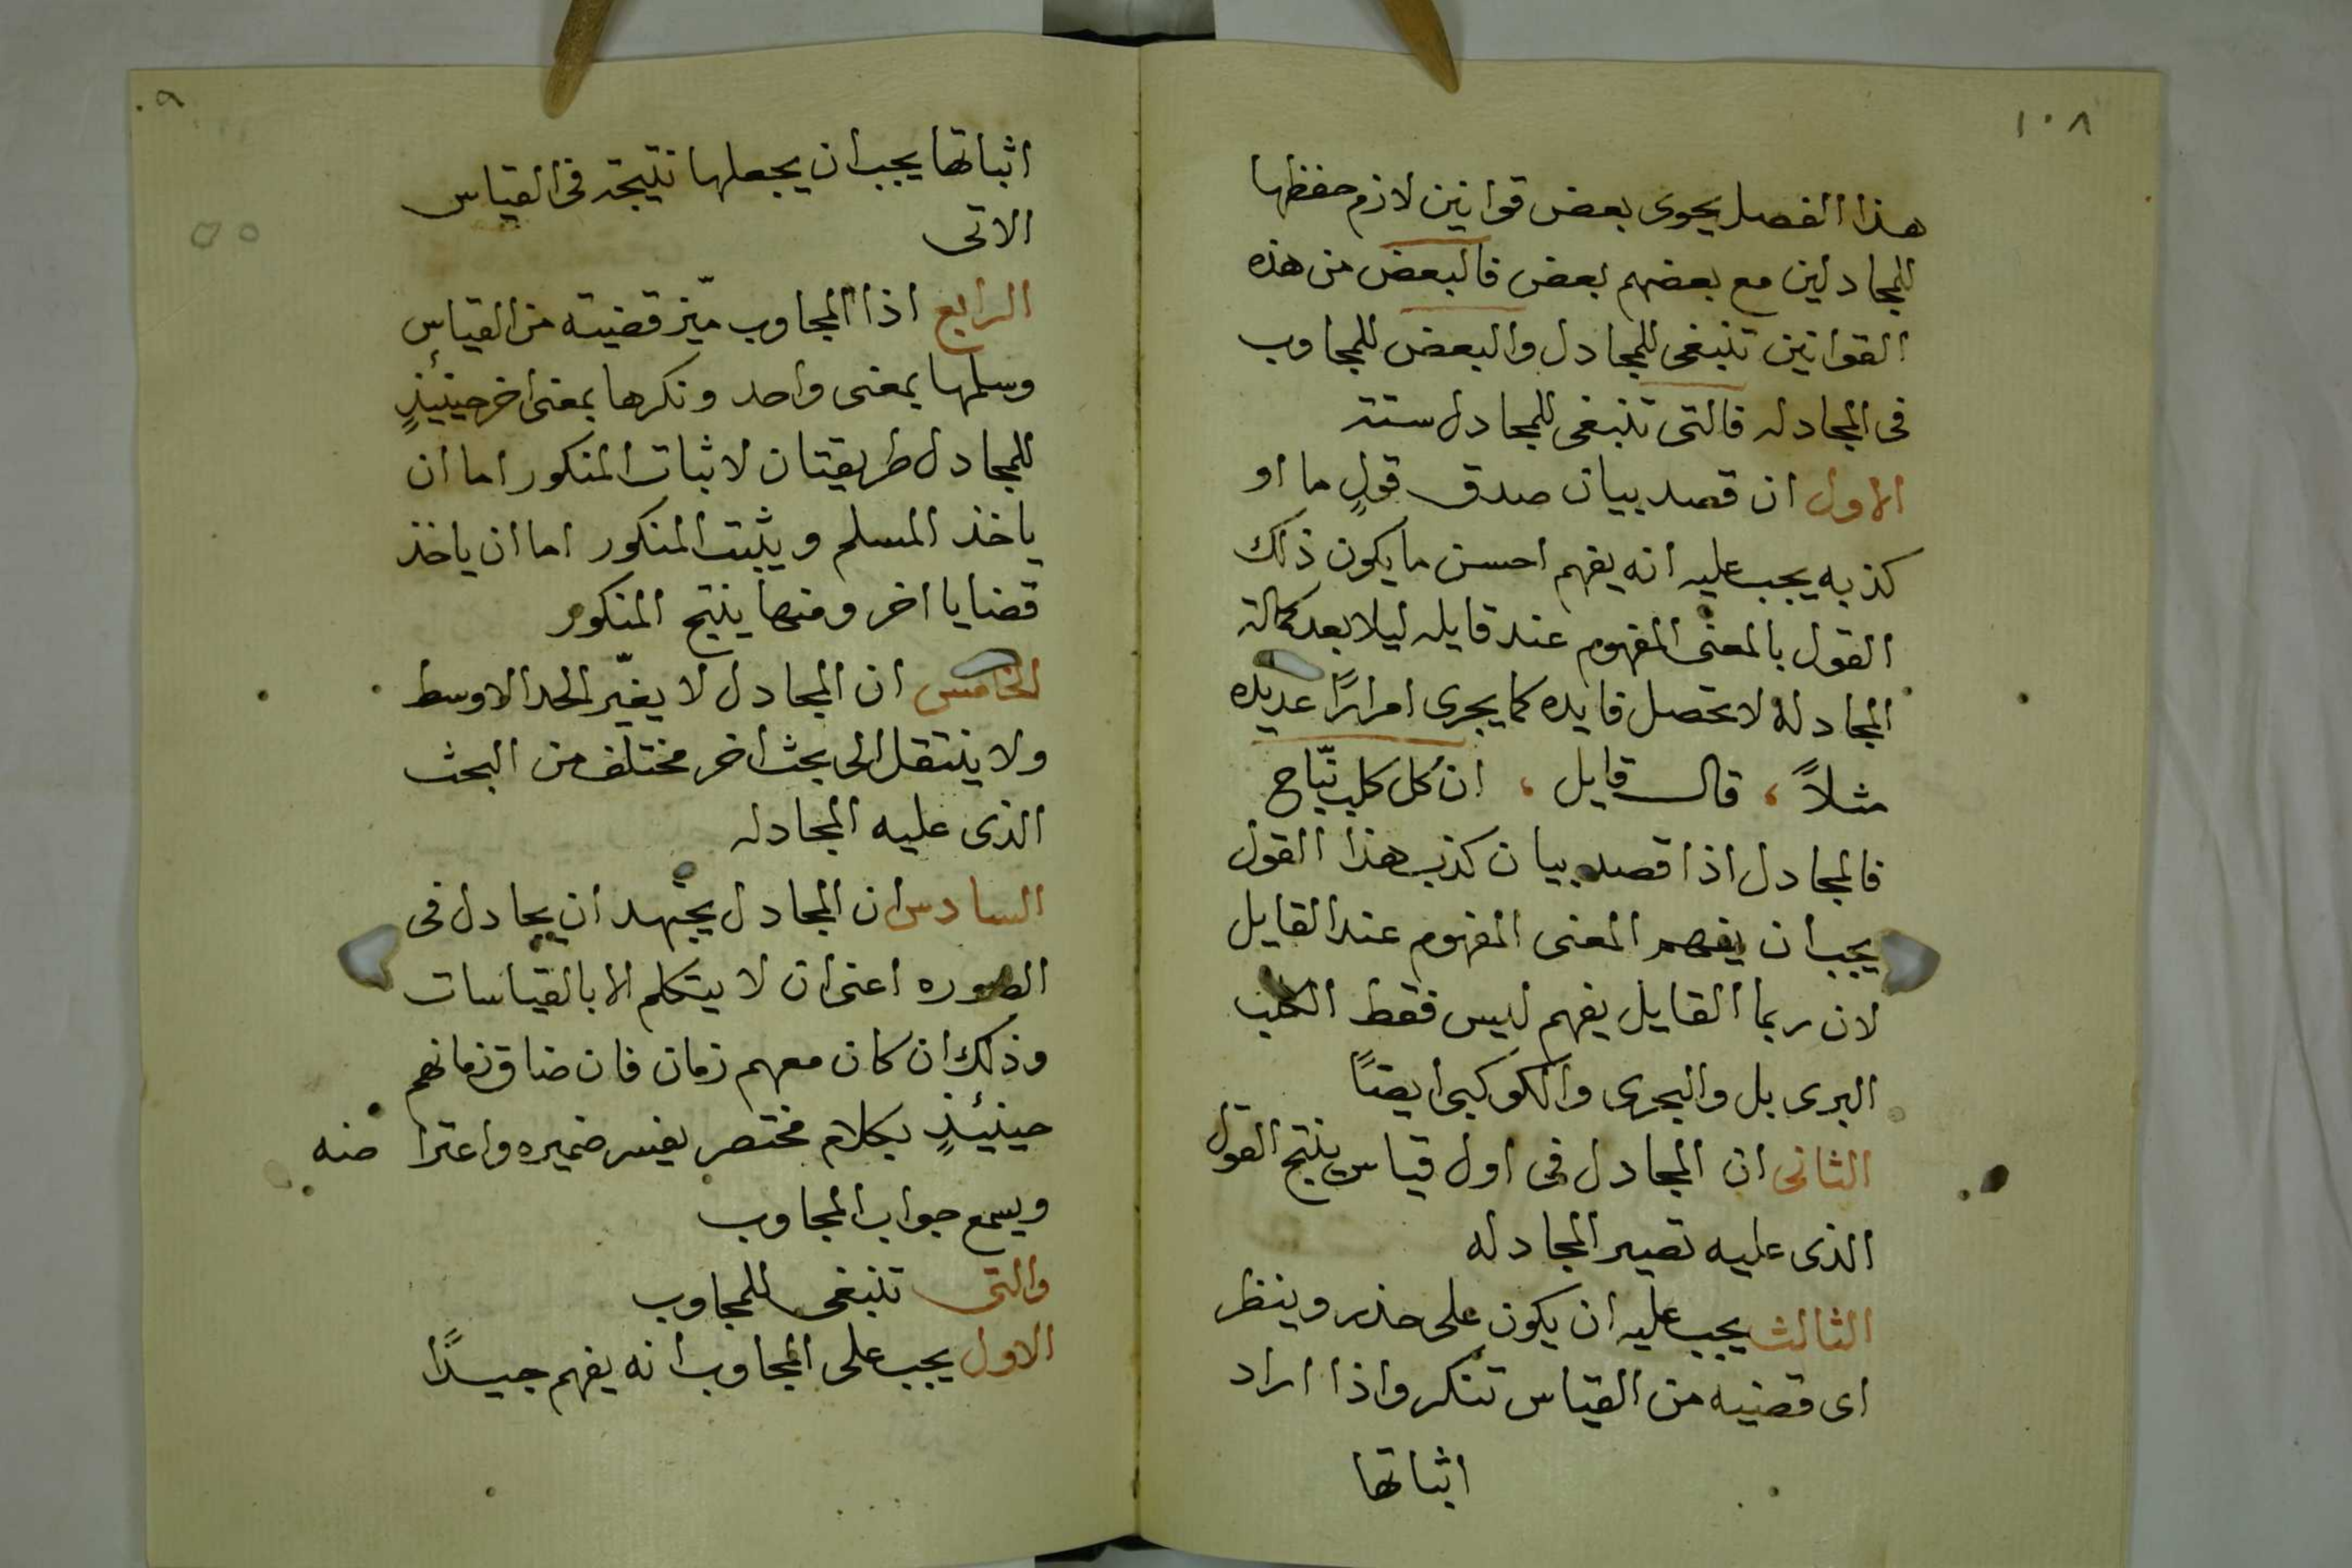 ١٠٨
هذا الفصل يحوى بعض قوانين لازم حفظها
للمجادلين مع بعضهم بعض فالبعض من هذه
القوانين تنبغى للمجادل والبعض للمجاوب
فى المجادله فالتى تنبغى للمجادل ستة
الاول ان قصد بيان صدق قولٍ ما او
كذبه يجب عليه انه يفهم احسن ما يكون ذلك
القول بالمعنى المفهوم عند قايله ليلا بعد كمالة
المجادلة لا تحصل فايده كما يجرى امرارًا عديده
مثلاً، قال قايل، ان كل كلب نبّاح
فالمجادل اذا قصد بيان كذب هذا القول
يجب ان يفهم المعنى المفهوم عند القايل
لان ربما القايل يفهم ليس فقط الكلب
البرى بل والبحرى والكوكبى ايضًا
الثانى ان المجادل فى اول قياس ينتج القول
الذى عليه تصير المجادله
الثالث يجب عليه ان يكون على حذر وينظر
اى قضيه من القياس تنكر واذا اراد
اثباتها
٠٩
٥٥
اثباتها يجب ان يجعلها نتيجة فى القياس
الاتى
الرابع اذا المجاوب ميّز قضيته من القياس
وسلمها بمعنى واحد ونكرها بمعنى اخر حينيئذٍ
للمجادل طريقتان لاثبات المنكور اما ان
ياخذ المسلم ويثبت المنكور اما ان ياخذ
قضايا اخر ومنها ينتج المنكور
الخامس ان المجادل لا يغيّر الحد الاوسط
ولا ينتقل الى بحث اخر مختلف من البحث
الذى عليه المجادله
السادس ان المجادل يجتهد ان يجادل فى
الصوره اعنى ان لا يتكلم الا بالقياسات
وذلك ان كان معهم زمان فان ضاق زمانهم
حينيئذٍ بكلام مختصر يفسر ضميره واعترا ضه
ويسمع جواب المجاوب
والتى تنبغى للمجاوب
الاول يجب على المجاوب انه يفهم جيدًا